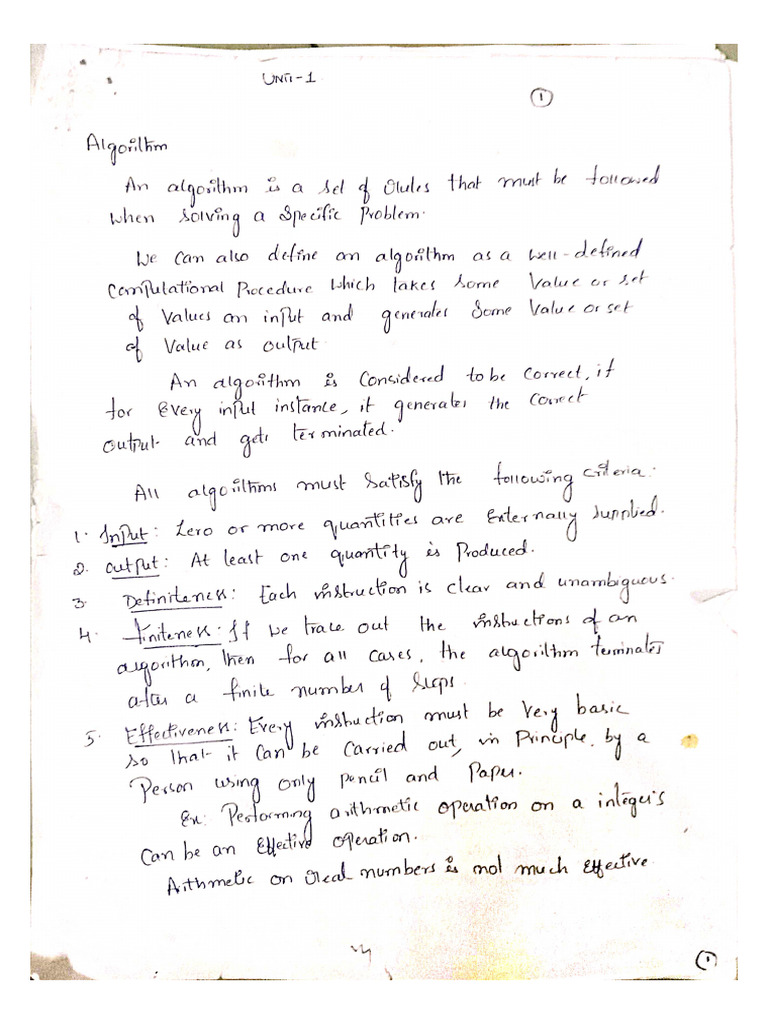 UNIT-1
1
Algorithm
An algorithm is a set of rules that must be followed
when solving a specific Problem.
We can also define an algorithm as a well-defined
Computational Procedure which takes some value or set
of values an input and generates some value or set
of value as output
An algorithm is considered to be correct, if
for every input instance, it generates the correct
output and gets terminated.
All algorithms must satisfy the following criteria.
1. Input: Zero or more quantities are externally supplied.
2. output: At least one quantity is Produced.
3. Definiteness: Each instruction is clear and unambiguous.
4. finiteness: If we trace out the instructions of an
algorithm, then for all cases, the algorithm terminates
after a finite number of steps.
5. Effectiveness: Every instruction must be very basic
so that it can be carried out, in Principle, by a
Person using only pencil and Paper.
Ex: Performing arithmetic operation on a integer's
Can be an Effective operation.
Arithmetic on real numbers is not much effective.
1